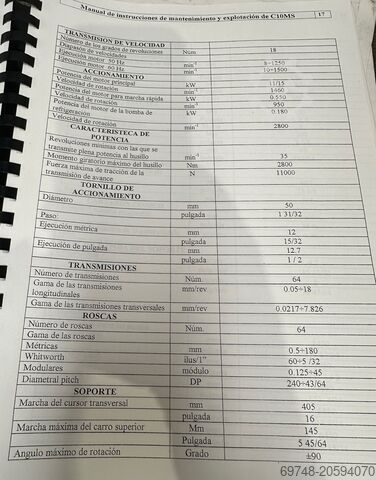 Manual de instrucciones de mantenimiento y explotación de C10MS 17
TRANSMISIÓN DE VELOCIDAD
Número de los grados de revoluciones Núm 18
Diapasón de velocidades
Ejecución motor 50 Hz min⁻¹ 8÷1250
Ejecución motor 60 Hz min⁻¹ 10÷1500
ACCIONAMIENTO
Potencia del motor principal kW 11/15
Velocidad de rotación min⁻¹ 1460
Potencia del motor para marcha rápida kW 0.550
Velocidad de rotación min⁻¹ 950
Potencia del motor de la bomba de kW 0.180
refrigeración
Velocidad de rotación min⁻¹ 2800
CARACTERÍSTECA DE
POTENCIA
Revoluciones mínimas con las que se
transmite plena potencia al husillo min⁻¹ 35
Momento giratorio máximo del husillo Nm 2800
Fuerza máxima de tracción de la N 11000
transmisión de avance
TORNILLO DE
ACCIONAMIENTO
Diámetro mm 50
Paso: pulgada 1 31/32
Ejecución métrica mm 12
pulgada 15/32
Ejecución de pulgada mm 12.7
pulgada 1 / 2
TRANSMISIONES
Número de transmisiones Núm. 64
Gama de las transmisiones mm/rev 0.05÷18
longitudinales
Gama de las transmisiones transversales mm/rev 0.0217÷7.826
ROSCAS
Número de roscas Núm. 64
Gama de las roscas
Métricas mm 0.5÷180
Whitworth ilus/1" 60÷5 /32
Modulares módulo 0.125÷45
Diametral pitch DP 240÷43/64
SOPORTE
Marcha del cursor transversal mm 405
pulgada 16
Marcha máxima del carro superior Mm 145
Pulgada 5 45/64
Angulo máximo de rotación Grado ±90
69748-20594070